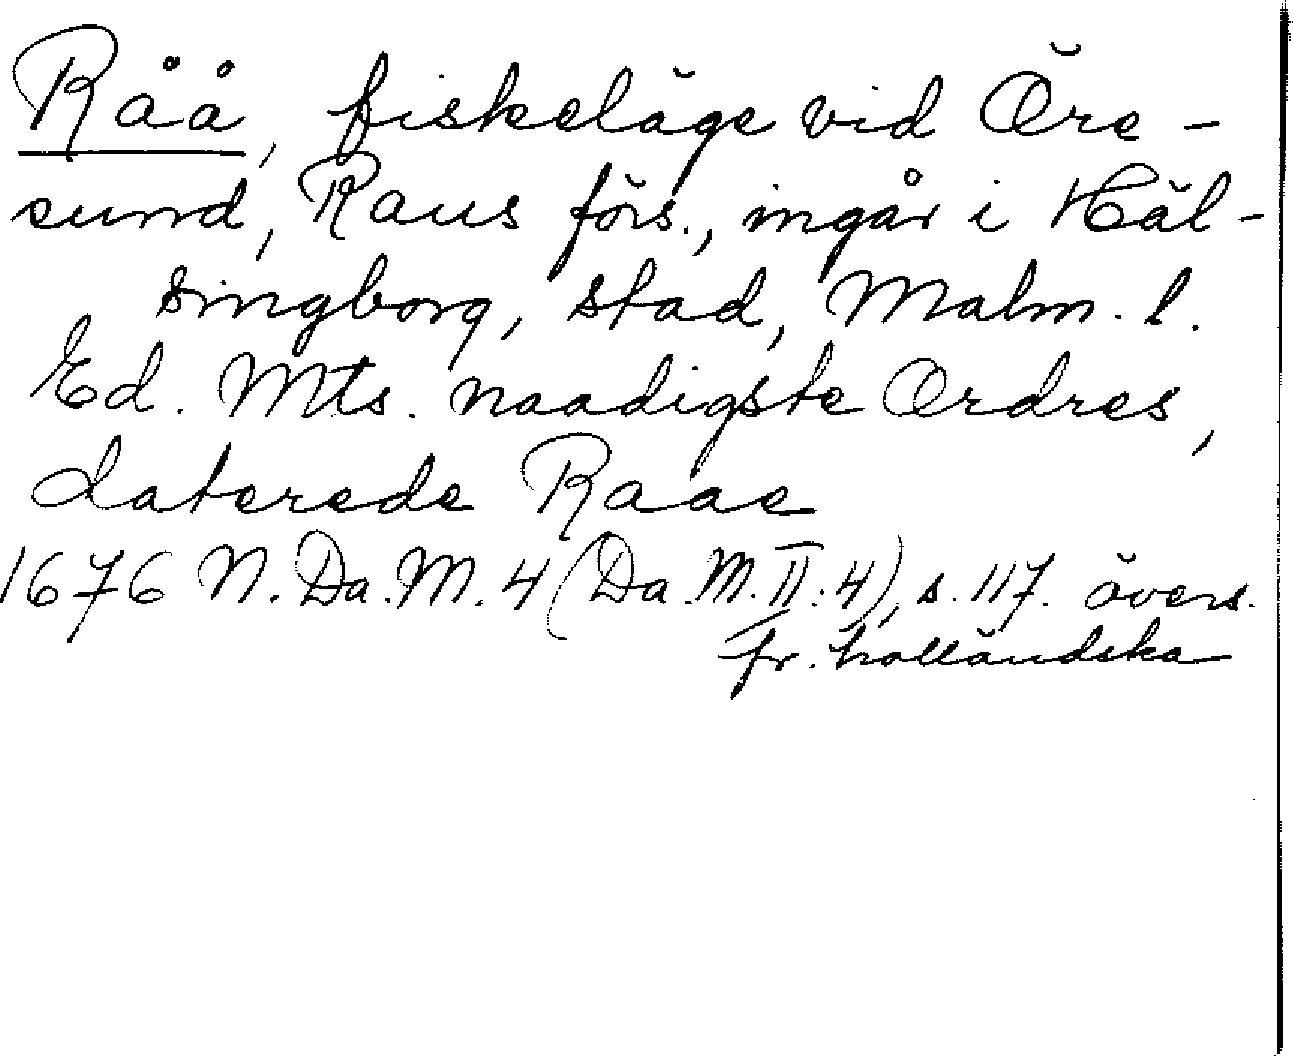 Råå, fiskeläge vid Öre-
sund, Raus förs., ingår i Häl-
singborg, stad, Malm. l.
Ed. Mts. naadigste Ordres,
daterede Raae
1676 N. Da. M. 4 (Da. M. II: 4), s. 117. övers.
fr. holländska